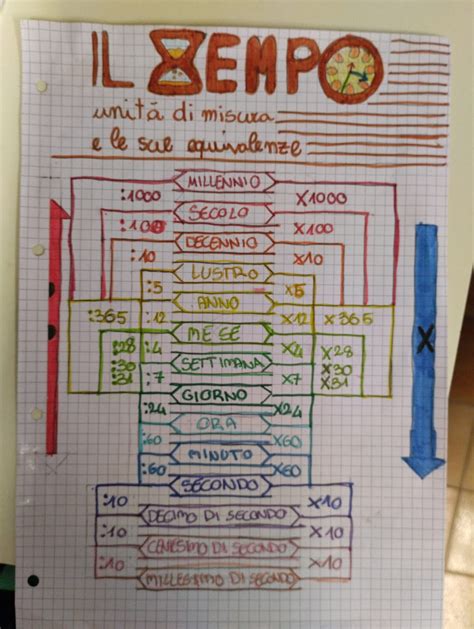 IL TEMPO
unità di misura
e le sue equivalenze
MILLENNIO
:1000 X1000
SECOLO
:100 X100
DECENNIO
:10 X10
LUSTRO
:5 X5
ANNO
:365 :12 X12 X365
MESE
:28 :4 X4 X28
:30 X30
:31 X31
SETTIMANA
:7 X7
GIORNO
:24 X24
ORA
:60 X60
MINUTO
:60 X60
SECONDO
:10 X10
DECIMO DI SECONDO
:10 X10
CENTESIMO DI SECONDO
:10 X10
MILLESIMO DI SECONDO
:
X